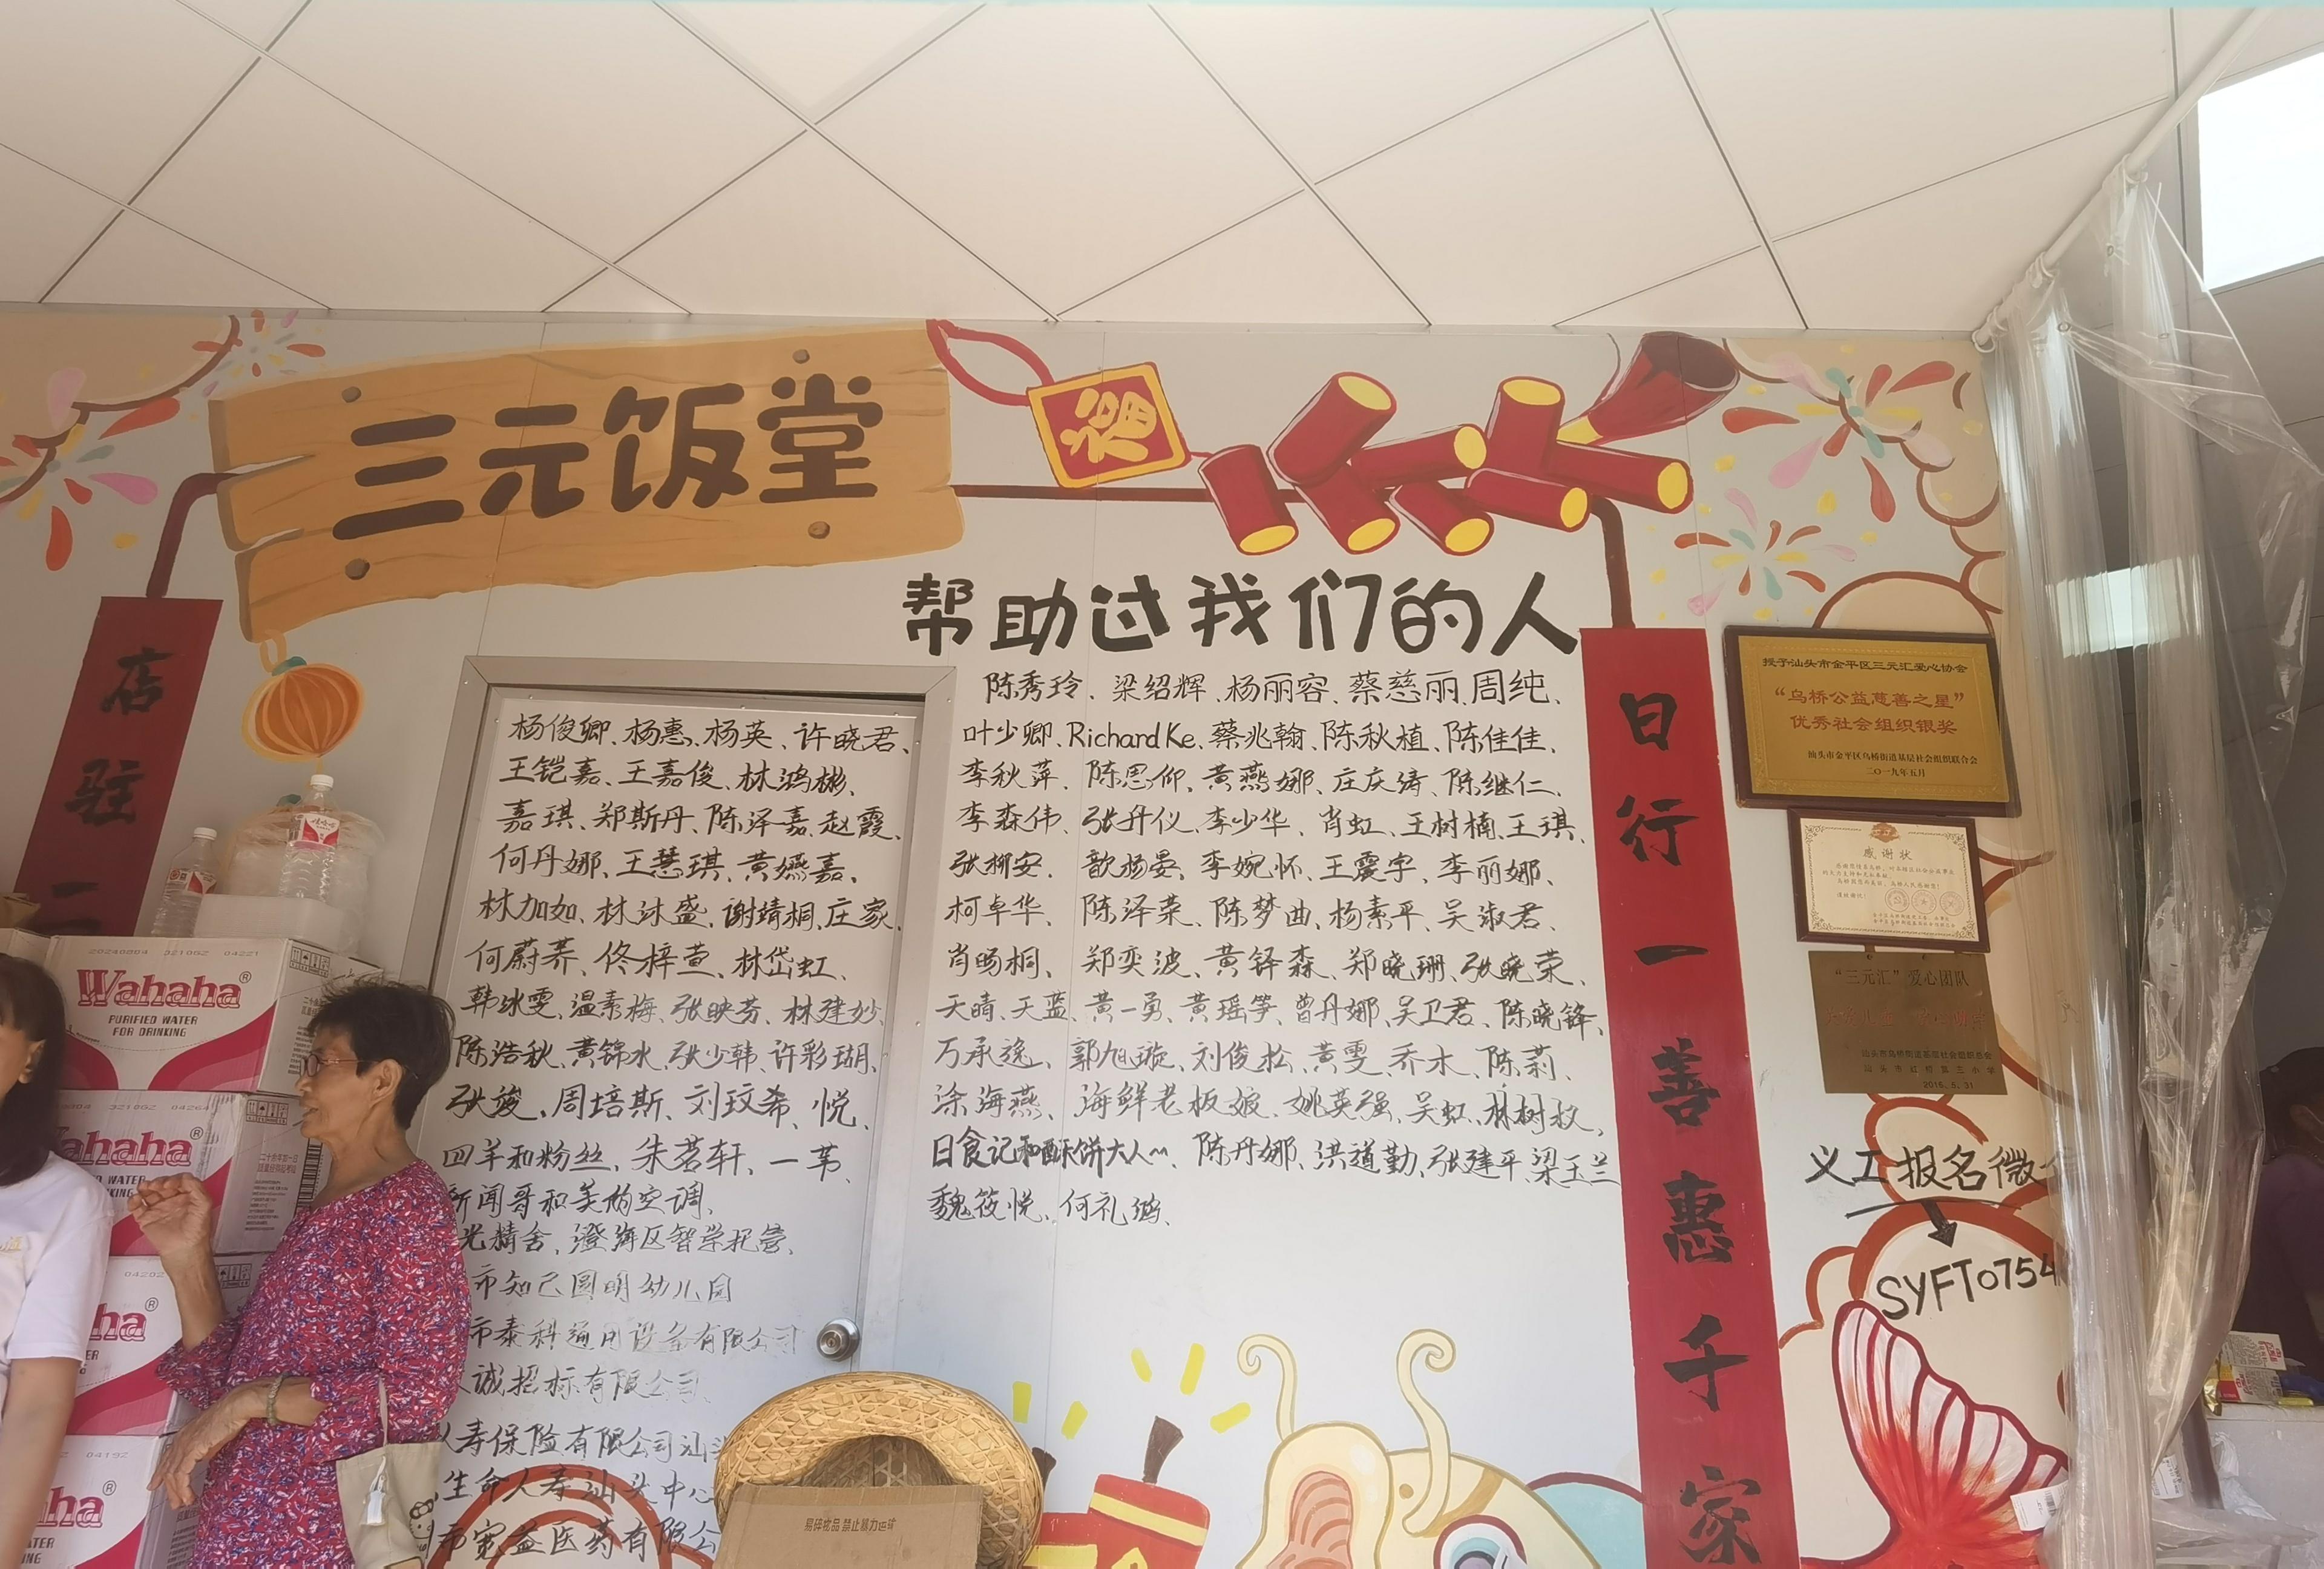 三元饭堂
福
帮助过我们的人
店驻三
杨俊卿、杨惠、杨英、许晓君、
王铠嘉、王嘉俊、林鸿彬、
嘉琪、郑斯丹、陈泽嘉、赵霞、
何丹娜、王慧琪、黄嬿嘉、
林加如、林沐盛、谢靖桐、庄家、
何蔚荞、佟梓萱、林岱虹、
韩冰雯、温素梅、张映芬、林建妙、
陈浩秋、黄锦水、张少韩、许彩瑚、
张浚、周培斯、刘玟希、悦、
四羊和粉丝、朱茗轩、一苇、
新闻哥和美的空调、
光精舍、澄海区智学托管、
市知己圆明幼儿园
市泰科通用设备有限公司
诚招标有限公司、
人寿保险有限公司汕
生命人寿汕头中心
市宽益医药有限公
陈秀玲、梁绍辉、杨丽容、蔡慈丽、周纯、
叶少卿、Richard Ke、蔡兆翰、陈秋植、陈佳佳、
李秋萍、陈思仰、黄燕娜、庄庆涛、陈继仁、
李森伟、张丹仪、李少华、肖虹、王树楠、王琪、
张柳安、歆杨晏、李婉怀、王震宇、李丽娜、
柯卓华、陈泽荣、陈梦曲、杨素平、吴淑君、
肖旸桐、郑奕波、黄铎森、郑晓珊、张晓荣、
天晴、天蓝、黄一勇、黄瑶笋、曾丹娜、吴卫君、陈晓锋、
万承逸、郭旭璇、刘俊松、黄雯、乔木、陈莉、
涂海燕、海鲜老板娘、姚英强、吴虹、林树权、
日食记和酥饼大人~、陈丹娜、洪道勤、张建平、梁玉兰
魏筱悦、何礼鸿、
日行一善惠千家
授予汕头市金平区三元汇爱心协会
“乌桥公益慈善之星”
优秀社会组织银奖
汕头市金平区乌桥街道基层社会组织联合会
二〇一九年五月
感谢状
“三元汇”爱心团队
汕头市乌桥街道基层社会组织总会
2016.5.31
义工报名微
SYFT0754
Wahaha®
PURIFIED WATER
FOR DRINKING
20240804 3210GZ 04221
ahaha®
WATER
KING
3210GZ 04264
ha®
04202
ha®
04192
ATER
易碎物品 禁止暴力运输